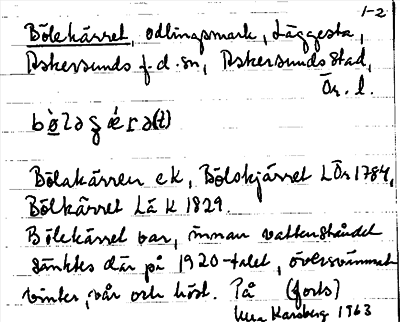 1-2
Bölekärret, odlingsmark, Läggesta,
Askersunds f.d. sn, Askersunds stad,
Ör. l.
Bölakärren ek, Bölskjärret LÖr 1784,
Bölkärret Lä K 1829.
Bölekärret var, innan vattenståndet
sänktes där på 1920-talet, översvämmat
vinter, vår och höst. På (forts)
Karlberg 1963